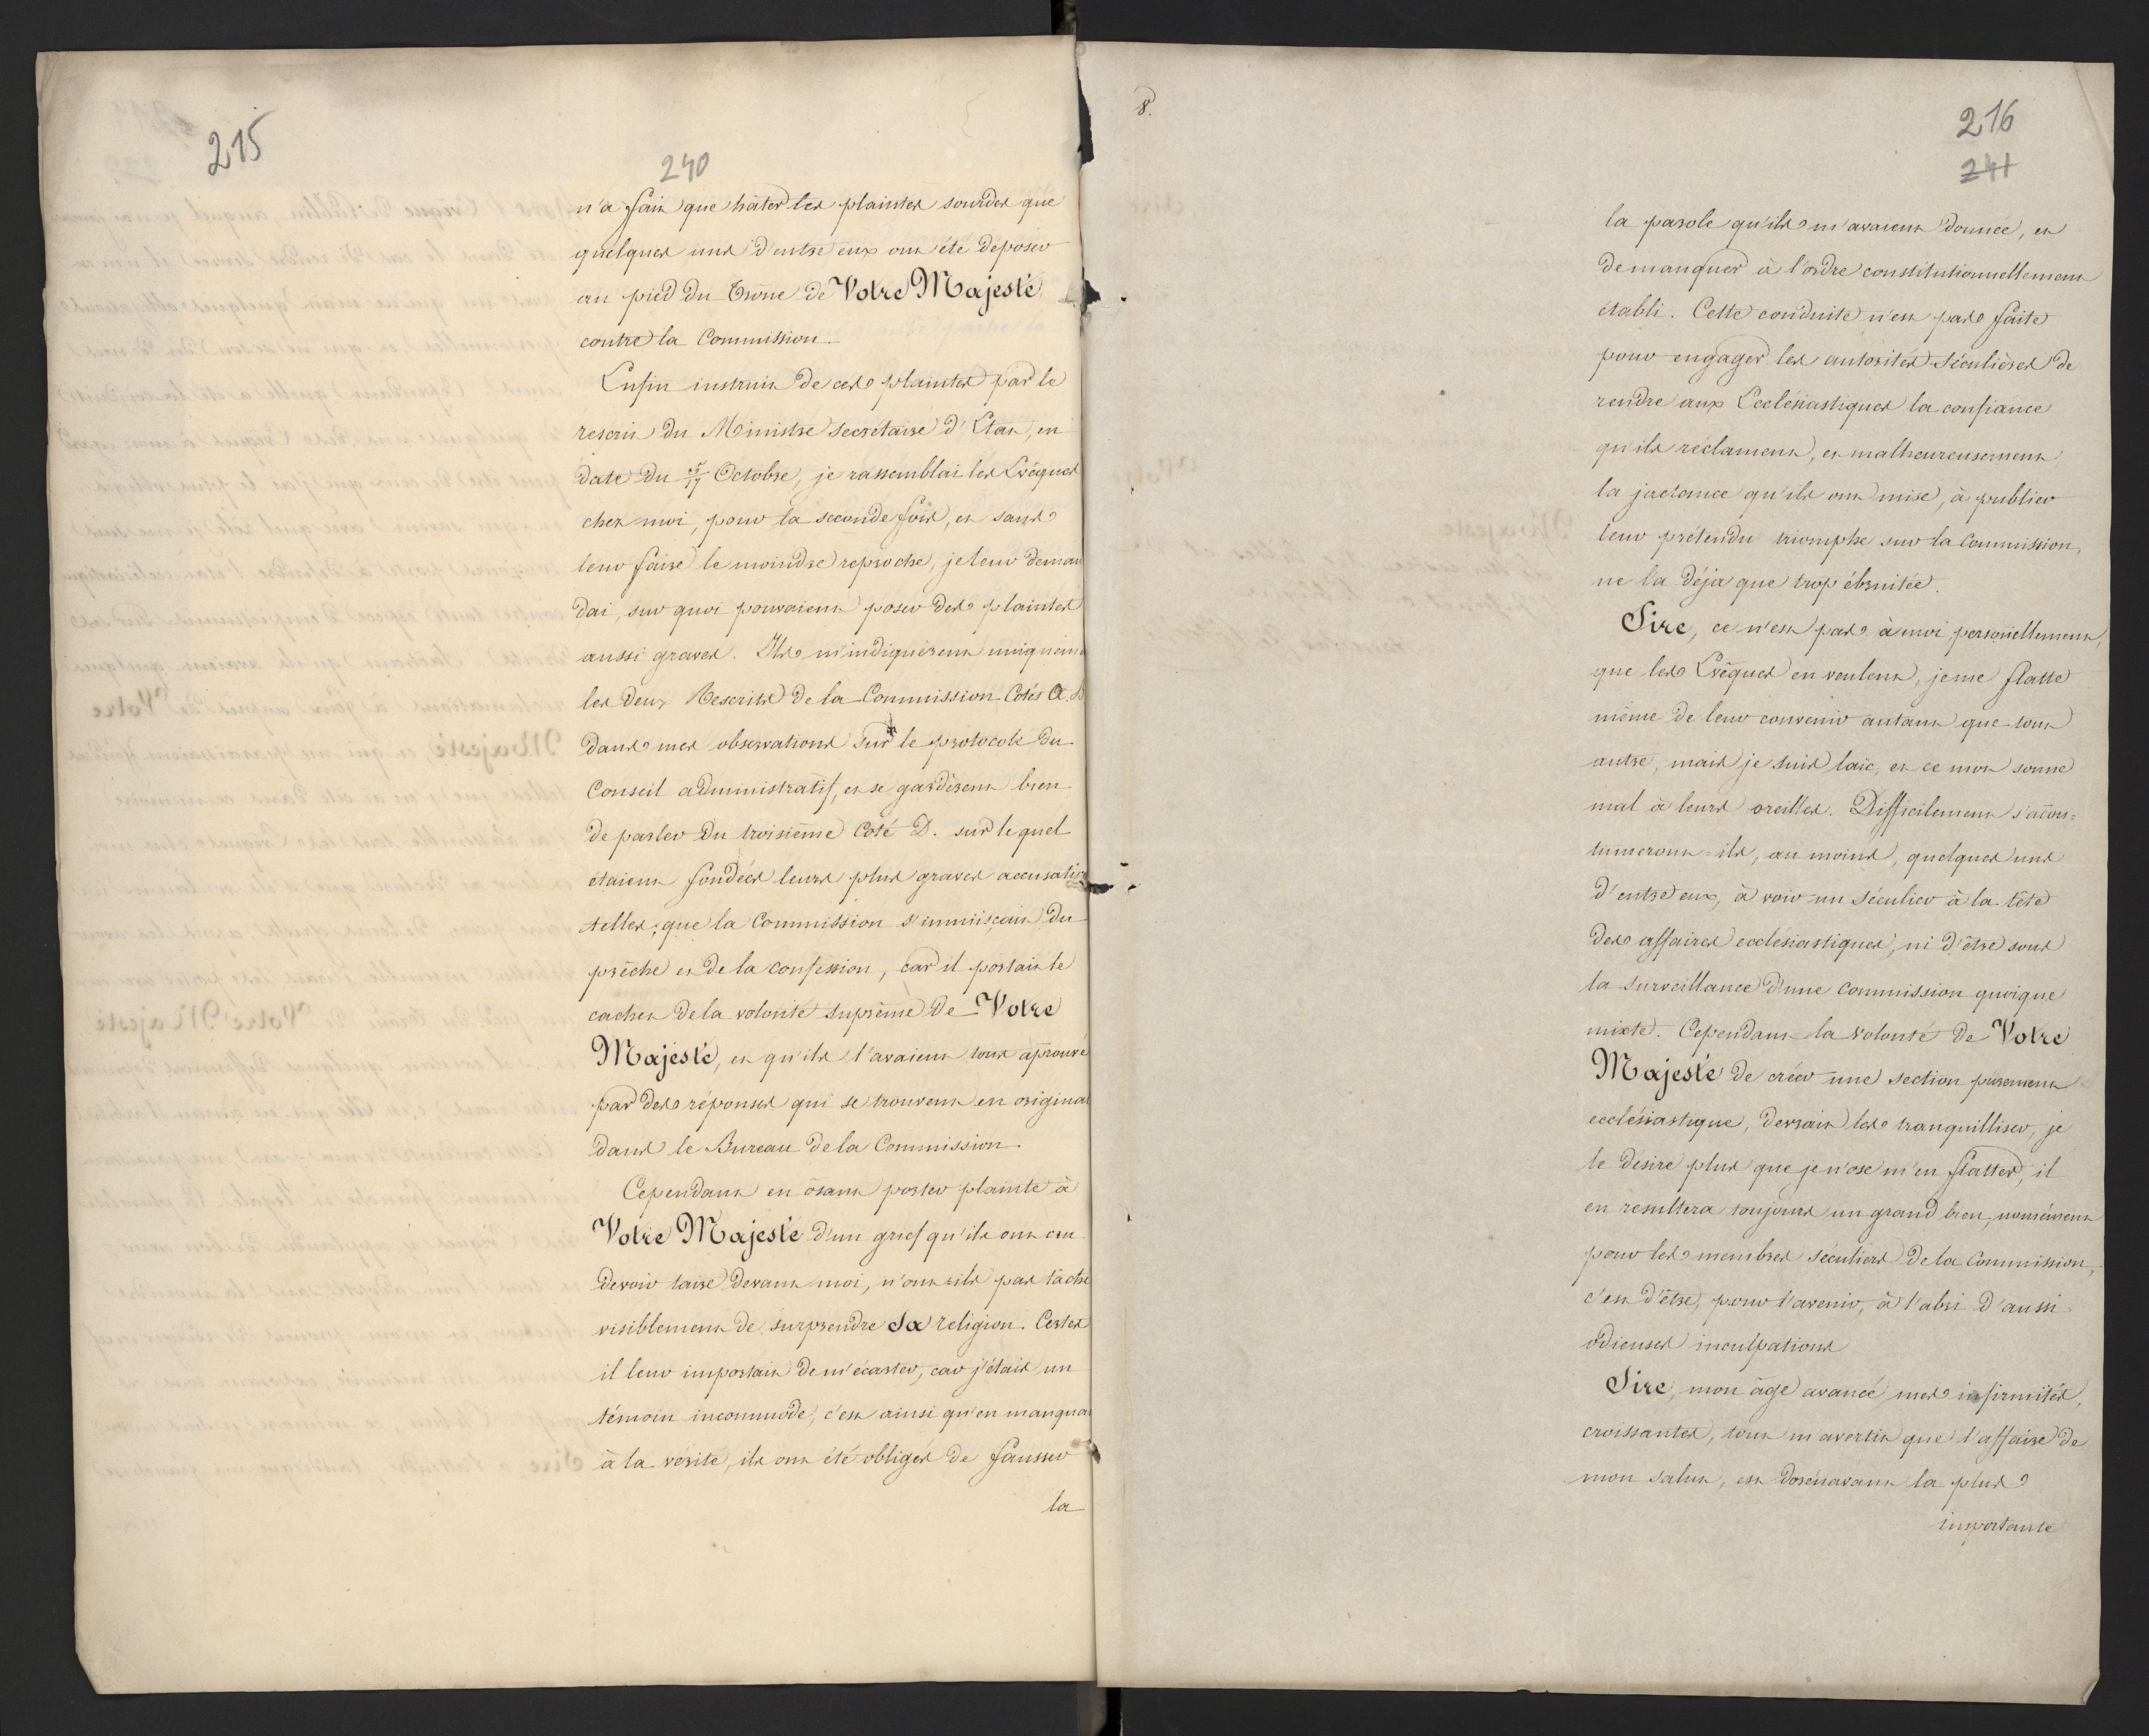 215
240
n'a fait que hâter les plaintes sourdes que
quelques uns d'entre eux ont été deposer
au pied du Trône de Votre Majesté
contre la Commission.
Enfin instruit de ces plaintes par le
rescrit du Ministre Secrétaire d'Etat, en
date du 5/17 Octobre, je rassemblai les Evêques
chez moi, pour la seconde fois, et sans
leur faire le moindre reproche, je leur deman
dai, sur quoi pouvaient poser des plaintes
aussi graves. Ils m'indiquèrent uniquem
les deux Rescrits de la Commission Cotés A. B
dans mes observations sur le protocole du
Conseil administratif, et se gardèrent bien
de parler du troisième Coté D. sur lequel
etaient fondées leurs plus graves accusatio
telles; que la Commission s'immisçait du
prêche et de la Confession, car il portait le
cachet de la volonté suprême de Votre
Majesté, et qu'ils l'avaient tous aprouvé
par des réponses qui se trouvent en original
dans le Bureau de la Commission.
Cependant en ôsant porter plainte à
Votre Majesté d'un grief qu'ils ont cru
devoir taire devant moi, n'ont-ils pas taché
visiblement de surprendre Sa religion. Certes
il leur importait de m'écarter, car j'étais un
témoin incommode, c'est ainsi qu'en manquan
à la vérité, ils ont été obligés de fausser
la
8.
216
241
la parole qu'ils m'avaient donnée, et
de manquer à l'ordre constitutionnellement
établi. Cette conduite n'est pas faite
pour engager les autorités Séculières de
rendre aux Ecclésiastiques la confiance
qu'ils réclament, et malheureusement
la jactance qu'ils ont mise, à publier
leur prétendu triomphe sur la Commission,
ne la déja que trop ébruitée.
Sire, ce n'est pas à moi personnellement,
que les Evêques en veulent, je me flatte
même de leur convenir autant que tout
autre, mais je suis laïc, et ce mot sonne
mal à leurs oreilles. Difficilement s'acou=
tumeront-ils, au moins, quelques uns
d'entre eux, à voir un Séculier à la tête
des affaires ecclésiastiques, ni d'être sous
la surveillance d'une Commission quoique
mixte. Cependant la volonté de Votre
Majesté de créer une section purement
ecclésiastique, devrait les tranquilliser, je
le désire plus que je n'ose m'en flatter, il
en resultera toujours un grand bien, nomément
pour les membres séculiers de la Commission,
c'est d'être, pour l'avenir, à l'abri d'aussi
odieuses inculpations
Sire, mon âge avancé, mes infirmités,
croissantes, tout m'avertit que l'affaire de
mon salut, est dorénavant la plus
importante